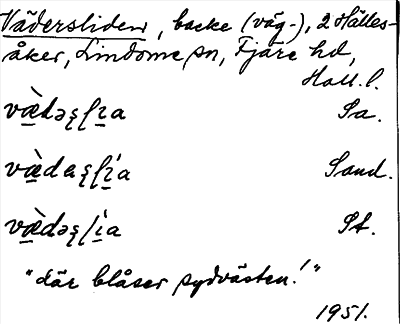 Väderslider, backe (väg-), 2 Hälles-
åker, Lindome sn, Fjäre hd,
Hall. l.
væ̀dəʂʃɪa Sa.
væ̀daʂʃɪ́a Sand.
væ̀dəʂʃɪ́a St.
"där blåser sydvästen!"
1951.